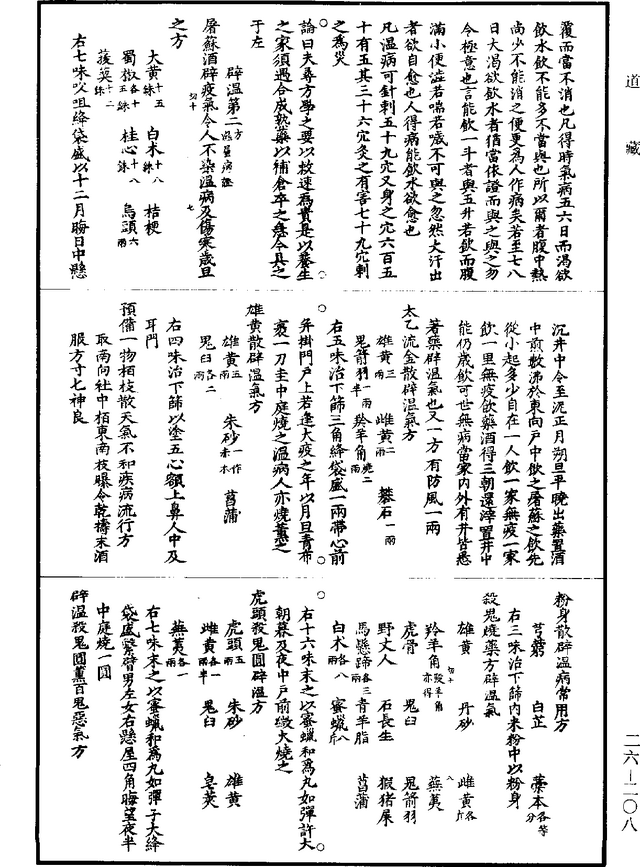 道藏
覆而當不消也凡得時氣病五六日而渴欲
飲水飲不能多不當與也所以爾者腹中熱
尚少不能消之便更為人作病矣若至七八
日大渴欲飲水者猶當依證而與之與之勿
令極意也言能飲一斗者與五升若飲而腹
滿小便澁若喘若噦不可與之忽然大汗出
者欲自愈也人得病能飲水欲愈也
凡溫病可針刺五十九穴又身之穴六百五
十有五其三十六穴灸之有害七十九穴刺
之為災
論曰夫尋方學之要以救速為貴是以養生
之家須遇合成熟藥以補倉卒之急今具之
于左
辟溫第二
屠蘇酒辟疫氣令人不染溫病及傷寒歲旦
之方
大黃十五銖 白朮十八銖 桔梗
蜀椒各十五銖 桂心十八銖 烏頭六
菝葜十二銖
右七味㕮咀絳袋盛以十二月晦日中懸
沉井中令至泥正月朔旦平曉出藥置酒
中煎數沸於東向戶中飲之屠蘇之飲先
從小起多少自在一人飲一家無疫一家
飲一里無疫飲藥酒得三朝還滓置井中
能仍歲飲可世無病當家內外有井皆悉
著藥辟溫氣也又一方有防風一兩
太乙流金散辟溫氣方
雄黃三兩 雌黃二兩 礬石一兩
鬼箭羽一兩半 羚羊角燒二兩
右五味治下篩三角絳袋盛一兩帶心前
并掛門戶上若逢大疫之年以月旦青布
裹一刀圭中庭燒之溫病人亦燒薰之
雄黃散辟溫氣方
雄黃五兩 朱砂一作赤朮 菖蒲
鬼臼各二兩
右四味治下篩以塗五心額上鼻人中及
耳門
預備一物栢枝散天氣不和疾病流行方
取南向社中栢東南枝曝令乾擣末酒
服方寸匕神良
粉身散辟溫病常用方
芎藭 白芷 藁本各等分
右三味治下篩內米粉中以粉身
殺鬼燒藥方辟溫氣
雄黃 丹砂 雌黃各斤
羚羊角羖羊角亦得 蕪荑
虎骨 鬼臼 鬼箭羽
野丈人 石長生 猳猪屎
馬懸蹄各三兩 青羊脂 菖蒲
白朮各八兩 蜜蠟八斤
右十六味末之以蜜蠟和為丸如彈許大
朝暮及夜中戶前微火燒之
虎頭殺鬼圓辟溫方
虎頭五兩 朱砂 雄黃
雌黃各一兩半 鬼臼 皂莢
蕪荑各一兩
右七味末之以蜜蠟和為丸如彈子大絳
袋盛繫臂男左女右懸屋四角晦望夜半
中庭燒一圓
辟溫殺鬼圓薰百鬼惡氣方
二六—二〇八